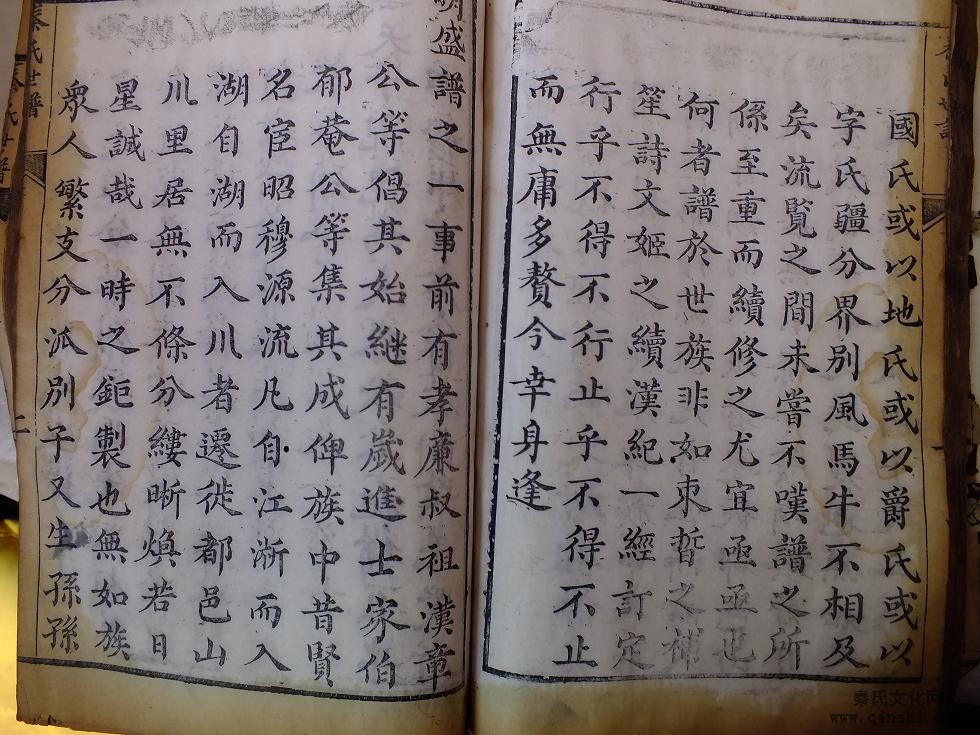 國氏或以地氏或以爵氏或以
字氏疆分界別風馬牛不相及
矣流覽之間未嘗不嘆譜之所
係至重而續修之尤宜亟亟也
何者譜於世族非如束晳之補
笙詩文姬之續漢紀一經訂定
行乎不得不行止乎不得不止
而無庸多贅今幸身逢
明盛譜之一事前有孝廉叔祖漢章
公等倡其始継有歲進士家伯
郁菴公等集其成俾族中昔賢
名宦昭穆源流凡自江淅而入
湖自湖而入川者遷徙都邑山
川里居無不條分縷晰煥若日
星誠哉一時之鉅製也無如族
衆人繁支分派別子又生孫孫
二
秦氏世譜
氏世譜
秦氏文化网
www.qinshi.